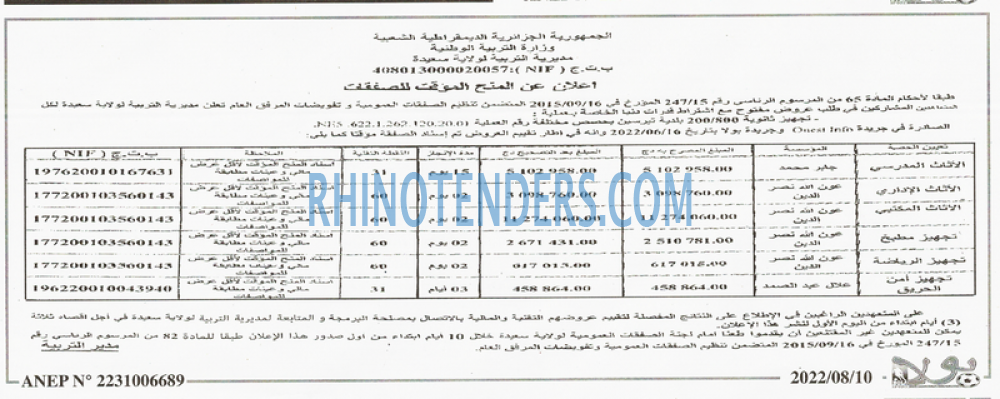 الجمهورية الجزائرية الديمقراطية الشعبية
وزارة التربية الوطنية
مديرية التربية لولاية سعيدة
ب.ت.ج ( NIF ):408013000020057
اعلان عن المنح المؤقت للصفقات
طبقا لأحكام المادة 65 من المرسوم الرئاسي رقم 247/15 المؤرخ في 2015/09/16 المتضمن تنظيم الصفقات العمومية و تفويضات المرفق العام تعلن مديرية التربية لولاية سعيدة لكل
المتعاملين المشاركين في طلب عروض مفتوح مع اشتراط قدرات دنيا الخاصة بعملية :
- تجهيز ثانوية 200/800 بلدية تيرسين بحصص مختلفة رقم العملية
الصادرة في جريدة Ouest Info وجريدة بولا بتاريخ 2022/06/16 وانه في إطار تقييم العروض تم إسناد الصفقة موقتا كما يلي:
تعيين الحصة المؤسسة المبلغ المصرح به دج المبلغ بعد التصحيح دج مدة الإنجاز النقطة التقنية الملاحظة ب.ت.ج ( NIF )
الأثاث المدرسي جابر محمد 5 102 958.00 5 102 958.00 15 يوم 31 اسناد المنح الموقت لأقل عرض مالي و عينات مطابقة للمواصفات 197620010167631
الأثاث الإداري عون الله نصر الدين 3 098 760.00 3 098 760.00 02 يوم 60 اسناد المنح الموقت لأقل عرض مالي و عينات مطابقة للمواصفات 177200103560143
الأثاث المكتبي عون الله نصر الدين 11 274 060.00 11 274 060.00 02 يوم 60 اسناد المنح الموقت لأقل عرض مالي و عينات مطابقة للمواصفات 177200103560143
تجهيز مطبخ عون الله نصر الدين 2 510 781.00 2 671 431.00 02 يوم 60 اسناد المنح الموقت لأقل عرض مالي و عينات مطابقة للمواصفات 177200103560143
تجهيز الرياضة عون الله نصر الدين 617 015.00 617 015.00 02 يوم 60 اسناد المنح الموقت لأقل عرض مالي و عينات مطابقة للمواصفات 177200103560143
تجهيز أمن الحريق علال عبد الصمد 458 864.00 458 864.00 03 أيام 31 اسناد المنح الموقت لأقل عرض مالي و عينات مطابقة للمواصفات 196220010043940
RHINOTENDERS.COM
على المتعهدين الراغبين في الإطلاع على النتائج المفصلة لتقييم عروضهم التقنية والمالية بالاتصال بمصلحة البرمجة و المتابعة لمديرية التربية لولاية سعيدة في أجل أقصاه ثلاثة
(3) أيام ابتداء من اليوم الأول لنشر هذا الإعلان.
يمكن للمتعهدين غير المقتنعين أن يقدموا طعنا أمام لجنة الصفقات العمومية لولاية سعيدة خلال 10 أيام ابتداء من أول صدور هذا الإعلان طبقا للمادة 82 من المرسوم الرئاسي رقم
247/15 المؤرخ في 2015/09/16 المتضمن تنظيم الصفقات العمومية وتفويضات المرفق العام.
مدير التربية
ANEP N° 2231006689
بولا - 2022/08/10